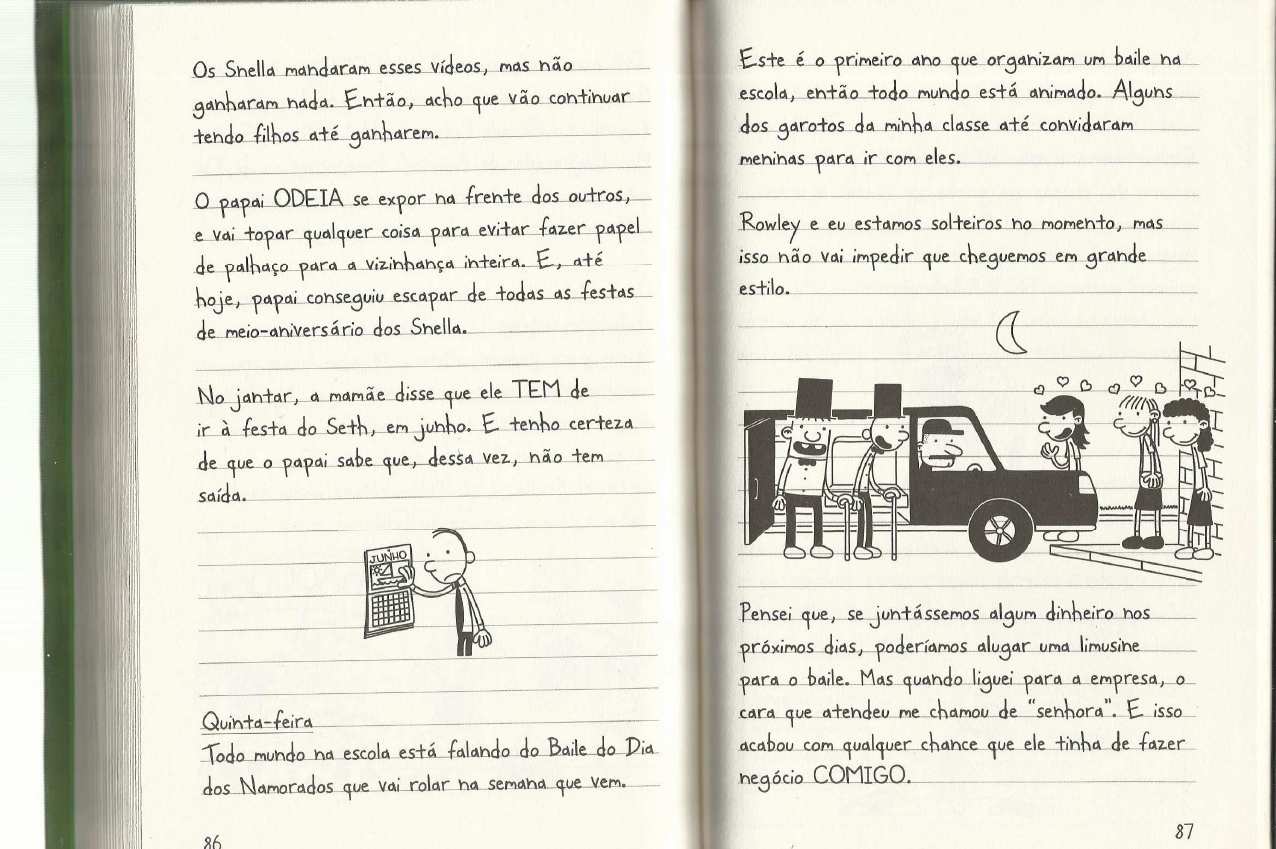 Os Snella mandaram esses vídeos, mas não
ganharam nada. Então, acho que vão continuar
tendo filhos até ganharem.
O papai ODEIA se expor na frente dos outros,
e vai topar qualquer coisa para evitar fazer papel
de palhaço para a vizinhança inteira. E, até
hoje, papai conseguiu escapar de todas as festas
de meio-aniversário dos Snella.
No jantar, a mamãe disse que ele TEM de
ir à festa do Seth, em junho. E tenho certeza
de que o papai sabe que, dessa vez, não tem
saída.
JUNHO
Quinta-feira
Todo mundo na escola está falando do Baile do Dia
dos Namorados que vai rolar na semana que vem.
86
Este é o primeiro ano que organizam um baile na
escola, então todo mundo está animado. Alguns
dos garotos da minha classe até convidaram
meninas para ir com eles.
Rowley e eu estamos solteiros no momento, mas
isso não vai impedir que cheguemos em grande
estilo.
Pensei que, se juntássemos algum dinheiro nos
próximos dias, poderíamos alugar uma limusine
para o baile. Mas quando liguei para a empresa, o
cara que atendeu me chamou de "senhora". E isso
acabou com qualquer chance que ele tinha de fazer
negócio COMIGO.
87